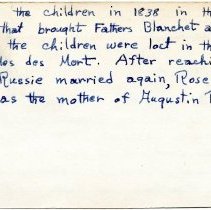 the children in 1838 in
that brought Fathers Blanchet
the children were lost in the
des Mort. After
Russie married again, Rose
as the mother of Augustin